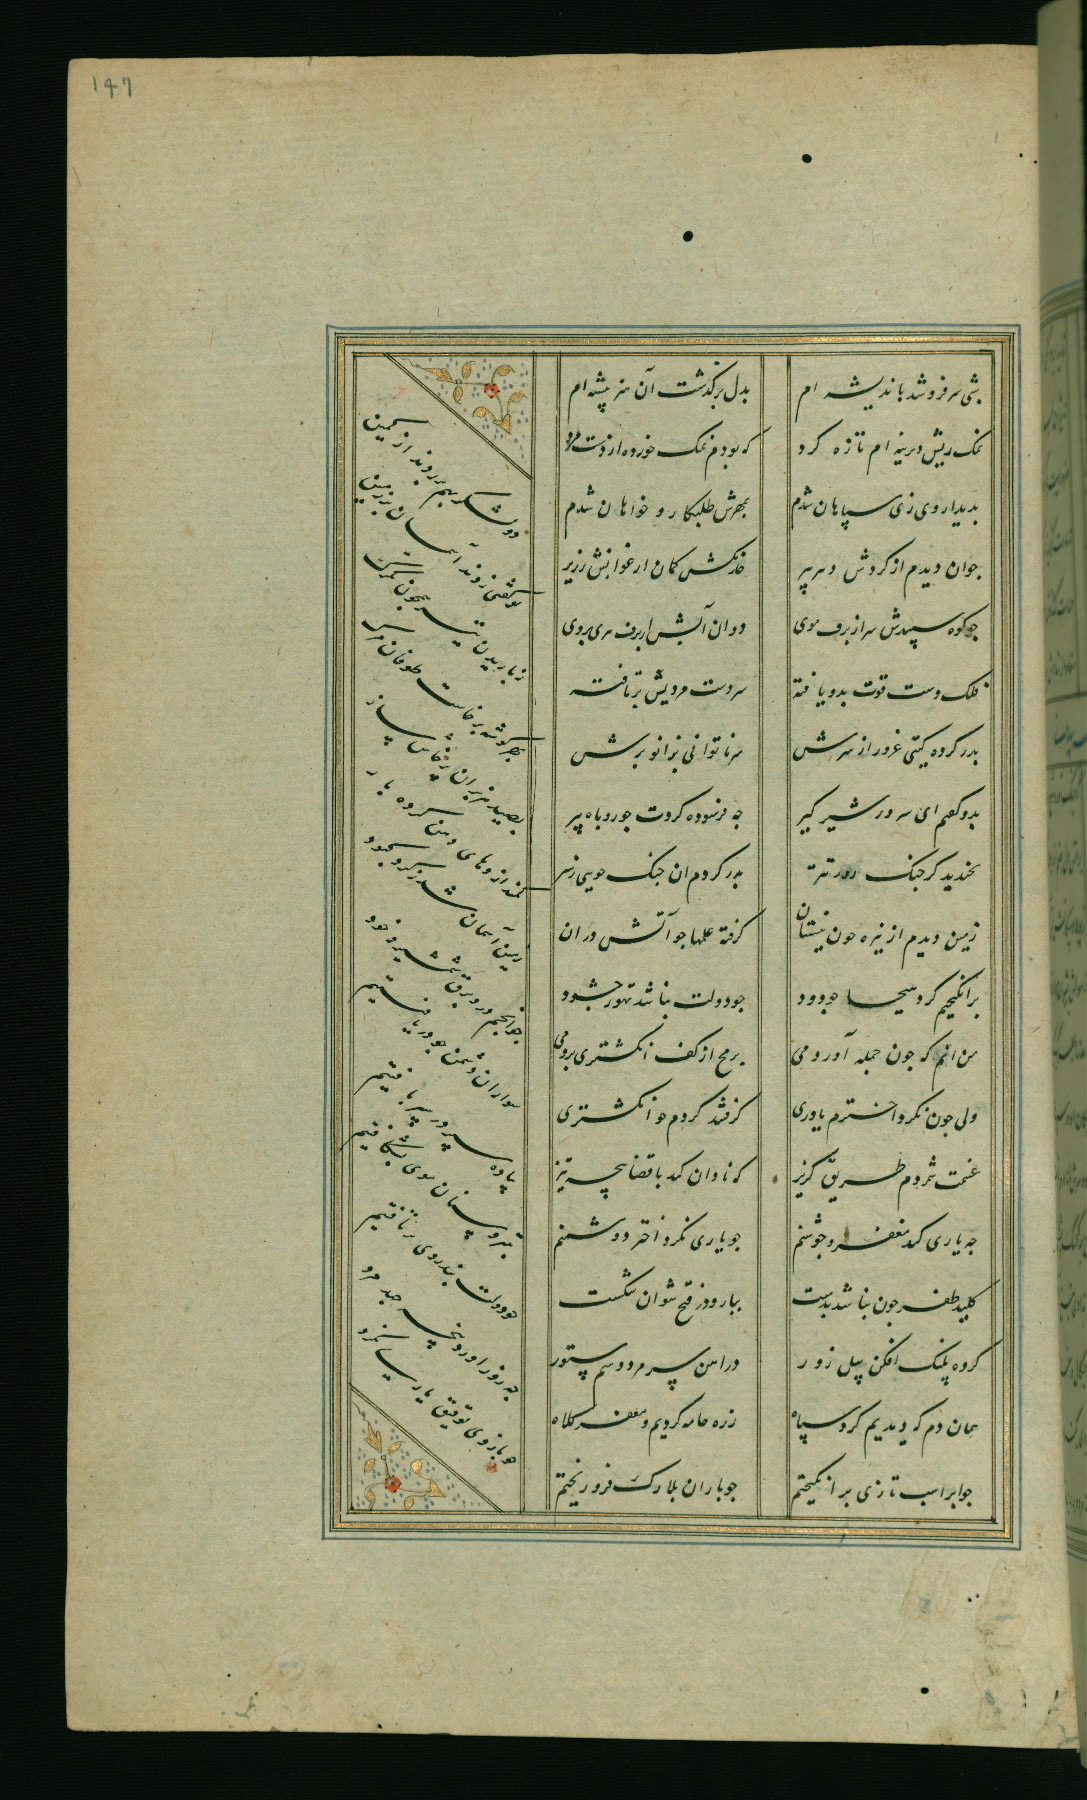 147
شبی سر فرو شد باندیشه ام بدل برگذشت آن هنر پیشه ام
نمک ریش دیرینه ام تازه کرد که بودم نمک خورده از دست مرد
بدیدار وی زی سپاهان شدم بمهرش طلبکار و خواهان شدم
جوان دیدم از کردش دهر پیر خدنکش کمان ارغوانش زریر
جو کوه سپیدش سر از برف موی دوان آبش از برف پیری بروی
فلک دست قوت بدو یافته سر دست مردیش برتافته
بدر کرده کیتی غرور از سرش سر ناتوانی بزانو برش
بدو کفتم ای سرور شیر کیر جه فرسوده کردت جو روباه پیر
بخندید کز جنک روز تتر بدر کردم ان جنک جویی ز سر
زمین دیدم از نیزه جون نیستان کرفته علمها جو آتش در ان
برانکیختم کرد هیجا جو دود جو دولت نباشد تهور جه سود
من انم که جون حمله آوردمی برمح از کف انکشتری بردمی
ولی جون نکرد اخترم یاوری کرفتند کردم جو انکشتری
غنیمت شمردم طریق کریز که نادان کند با قضا پنجه تیز
جه یاری کند مغفر و جوشنم جو یاری نکرد اختر روشنم
کلید ظفر جون نباشد بدست ببازو در فتح نتوان شکست
کروه پلنک افکن پیل زور در اهن سر مرد و سم ستور
همان دم که دیدیم کرد سپاه زره جامه کردیم و مغفر کلاه
جو ابر اسب تازی برانکیختم جو باران بلارک فرو ریختم
دو لشکر بهم بر زدند از کمین
تو کفتی زدند آسمان بر زمین
ز باریدن تیر همجون تکرک
بهر کوشه برخاست طوفان مرک
بصید هزبران پرخاش ساز
کمند اژدهای دهن کرده باز
زمین آسمان شد ز کرد کبود
جو انجم درو برق شمشیر و خود
سواران دشمن جو دریافتیم
پیاده سپر در سپر بافتیم
بتیر و سنان موی بشکافتیم
جو دولت نبد روی برتافتیم
جه زور اورد پنجه جهد مرد
جو بازوی توفیق یاری نکرد